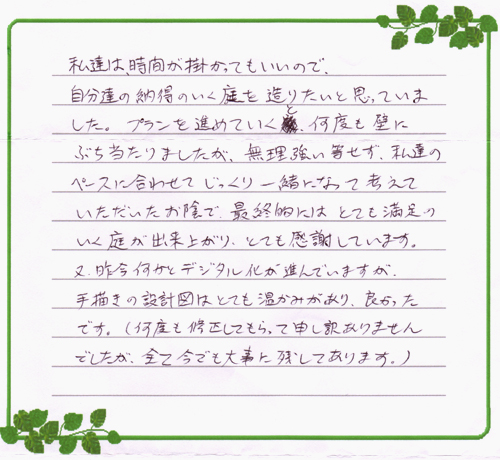 私達は、時間が掛かってもいいので、
自分達の納得のいく庭を造りたいと思っていま
した。プランを進めていくと、何度も壁に
ぶち当たりましたが、無理強い等せず、私達の
ペースに合わせてじっくり一緒になって考えて
いただいたお陰で、最終的にはとても満足の
いく庭が出来上がり、とても感謝しています。
又、昨今何かとデジタル化が進んでいますが、
手描きの設計図はとても温かみがあり、良かった
です。(何度も修正してもらって申し訳ありません
でしたが、全て今でも大事に残してあります。)